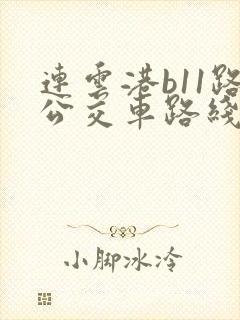 連雲港b11路
公交車路綫
小脚冰冷